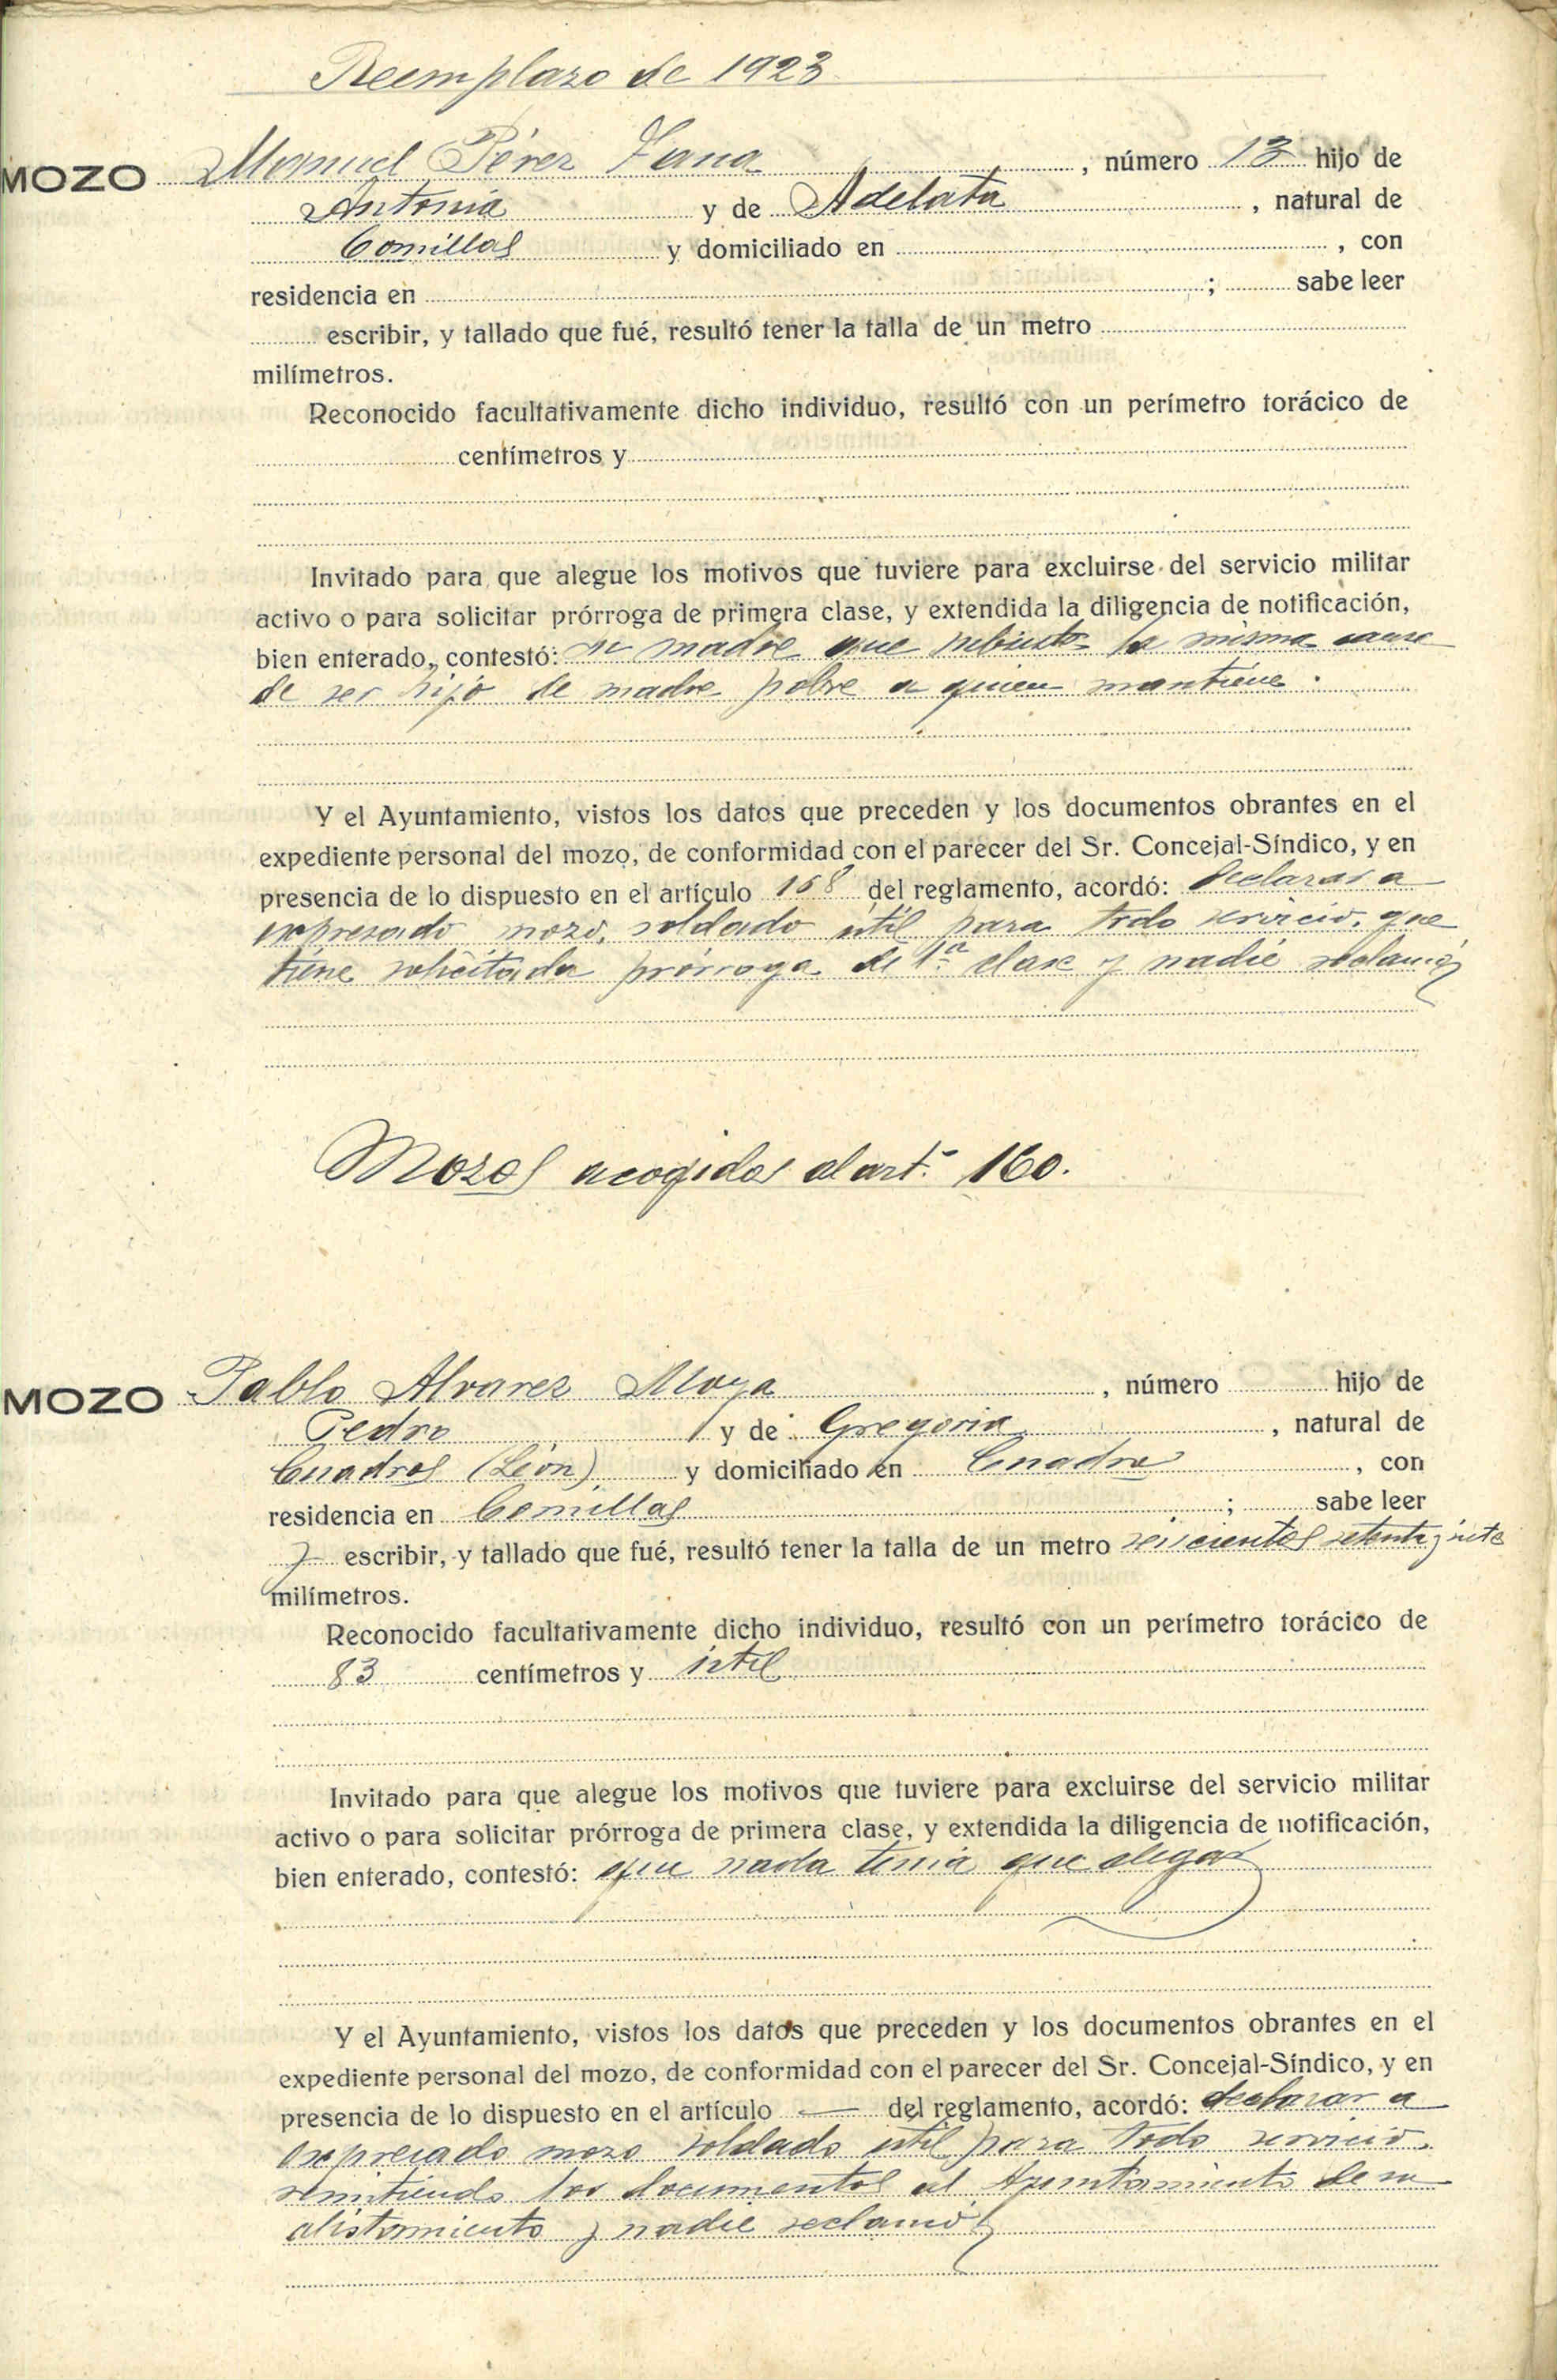 Reemplazo de 1923
MOZO Manuel Pérez Zana, número 13 hijo de
Antonia y de Adelata, natural de
Comillas y domiciliado en , con
residencia en ; sabe leer
escribir, y tallado que fué, resultó tener la talla de un metro
milímetros.
Reconocido facultativamente dicho individuo, resultó con un perímetro torácico de
centímetros y
Invitado para que alegue los motivos que tuviere para excluirse del servicio militar
activo o para solicitar prórroga de primera clase, y extendida la diligencia de notificación,
bien enterado, contestó: su madre que subsiste la misma causa
de ser hijo de madre pobre a quien mantiene.
Y el Ayuntamiento, vistos los datos que preceden y los documentos obrantes en el
expediente personal del mozo, de conformidad con el parecer del Sr. Concejal-Síndico, y en
presencia de lo dispuesto en el artículo 168 del reglamento, acordó: declarar a
expresado mozo, soldado útil para todo servicio, que
tiene solicitada prórroga de 1.ª clase y nadie reclamó
Mozos acogidos al art.º 160.
MOZO Pablo Alvarez Moya, número hijo de
Pedro y de Gregoria, natural de
Cuadros (León) y domiciliado en Cuadros, con
residencia en Comillas ; sabe leer
y escribir, y tallado que fué, resultó tener la talla de un metro seiscientos setenta y siete
milímetros.
Reconocido facultativamente dicho individuo, resultó con un perímetro torácico de
83 centímetros y útil
Invitado para que alegue los motivos que tuviere para excluirse del servicio militar
activo o para solicitar prórroga de primera clase, y extendida la diligencia de notificación,
bien enterado, contestó: que nada tenia que alegar
Y el Ayuntamiento, vistos los datos que preceden y los documentos obrantes en el
expediente personal del mozo, de conformidad con el parecer del Sr. Concejal-Síndico, y en
presencia de lo dispuesto en el artículo — del reglamento, acordó: declarar a
expresado mozo soldado útil para todo servicio,
remitiendo los documentos al Ayuntamiento de su
alistamiento y nadie reclamó